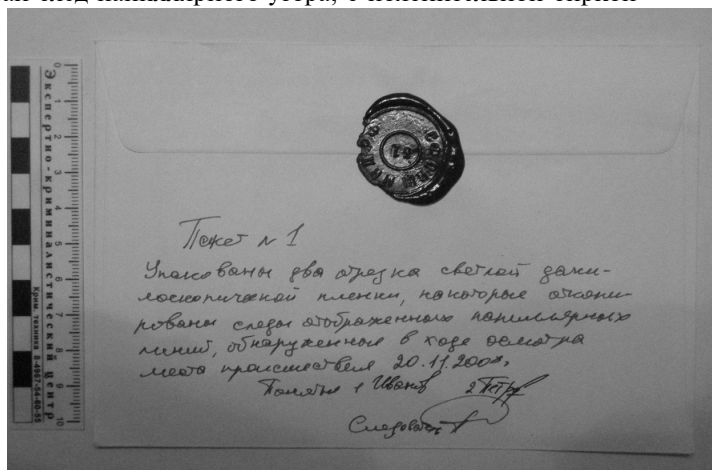 Экспертно-криминалистический центр
Крим техника 8-4967-54-60-55
0 1 2 3 4 5 6 7 8 9 10
Пакет № 1
Упакованы два отрезка светлой дакти-
лоскопической пленки, на которые откопи-
рованы следы отображенных папиллярных
линий, обнаруженные в ходе осмотра
места происшествия 20.11.200
Понятые 1 Иванов 2 Петров
Следователь